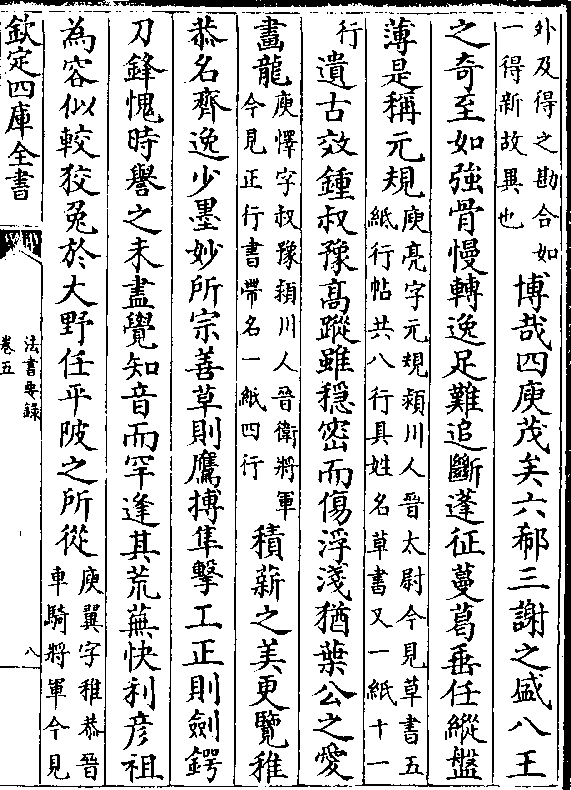 外及得之勘合如
一得新故異也
博哉四庾茂矣六郗三謝之盛八王
之奇至如強骨慢轉逸足難追斷蓬征蔓葛垂任縱盤
薄是稱元規
庾亮字元規潁川人晉太尉今見草書五
紙行帖共八行具姓名草書又一紙十一
行
遺古效鍾叔豫高蹤雖穩密而傷浮淺猶葉公之愛
畫龍
庾懌字叔豫潁川人晉衛將軍
今見正行書帶名一紙四行
積薪之美更覽稚
恭名齊逸少墨妙所宗善草則鷹搏隼擊工正則劍鍔
刀鋒愧時譽之未盡覺知音而罕逢其荒蕪快利彦祖
為容似較狡兔於大野任平陂之所從
庾翼字稚恭晉
車騎將軍今見
欽定四庫全書
法書要錄
卷五
八